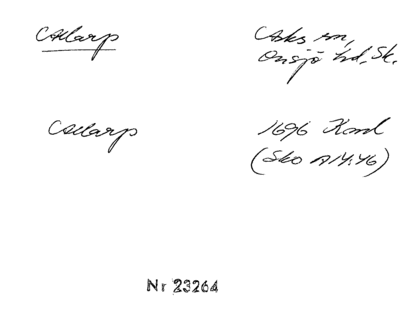 Allarp Asks sn,
Onsjö hd, Sk.
Allarp 1696 Konc
(Sko A 14:46)
Nr 23264